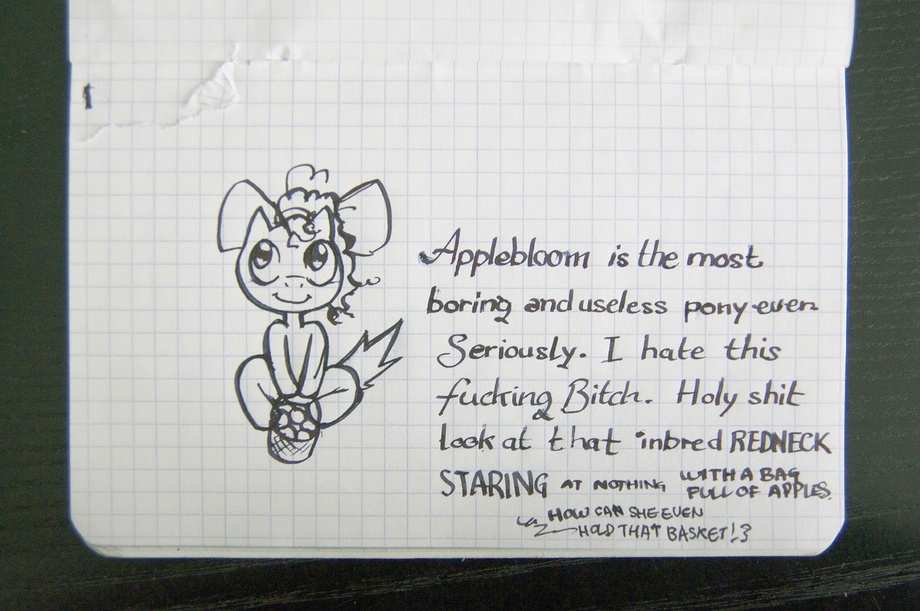 Applebloom is the most
boring and useless pony even
Seriously. I hate this
fucking Bitch. Holy shit
look at that inbred REDNECK
STARING AT NOTHING WITH A BAG
FULL OF APPLES.
HOW CAN SHE EVEN
HOLD THAT BASKET!?